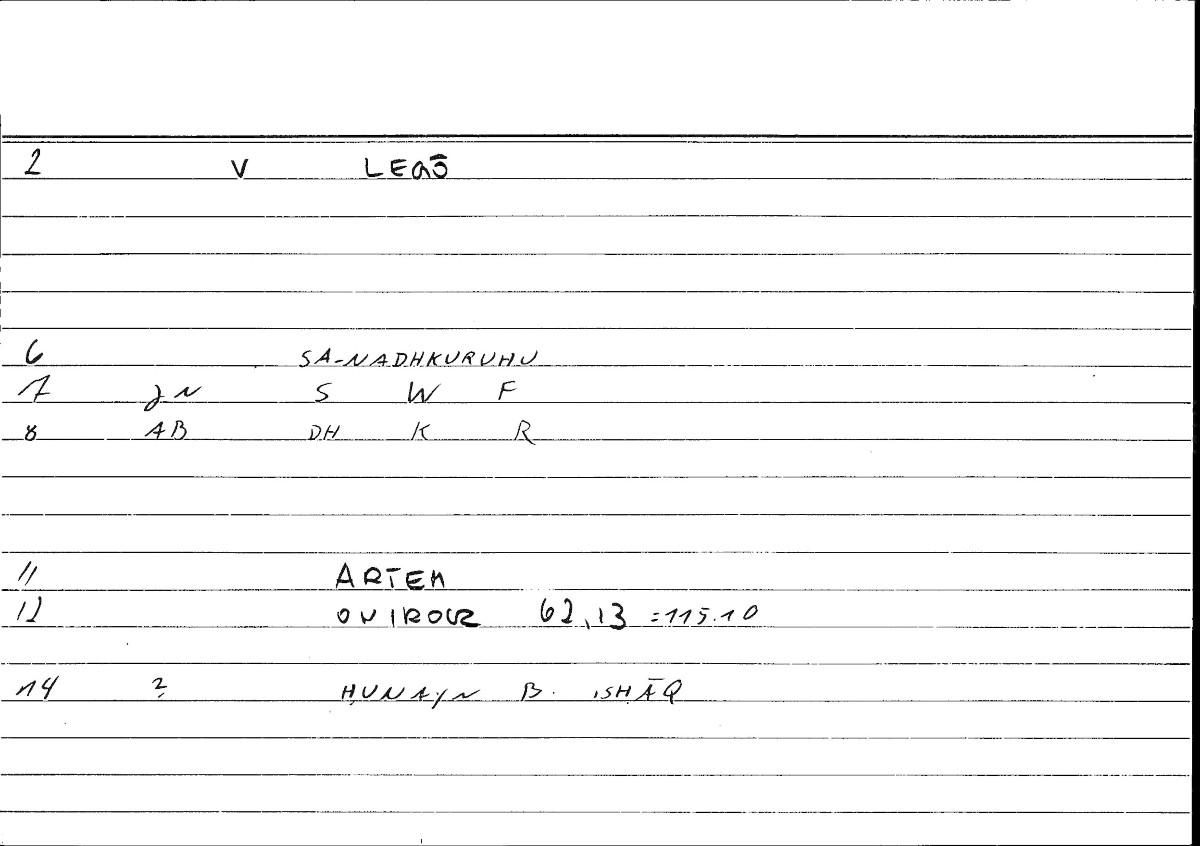 2 V LEGŌ
6 SA-NADHKURUHU
7 JN S W F
8 AB DH K R
11 ARTEM
12 62,13 =115.10
14 2 ḤUNAYN B. ISḤĀQ